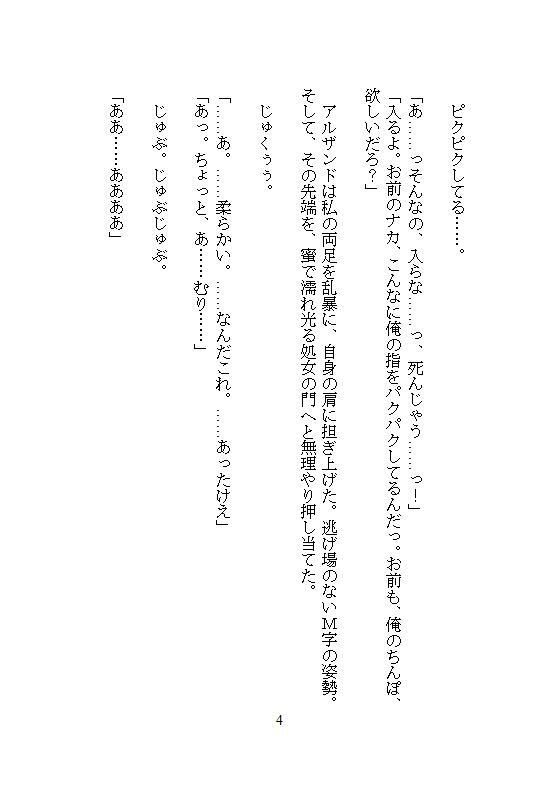 ピクピクしてる……。
「あ……っそんなの、入らな……っ、死んじゃう……っ！」
「入るよ。お前のナカ、こんなに俺の指をパクパクしてるんだっ。お前も、俺のちんぽ、
欲しいだろ？」
アルザンドは私の両足を乱暴に、自身の肩に担ぎ上げた。逃げ場のないＭ字の姿勢。
そして、その先端を、蜜で濡れ光る処女の門へと無理やり押し当てた。
じゅくぅぅ。
「……あ。……柔らかい。……なんだこれ。……あったけえ」
「あっ。ちょっと、あ……むり……」
じゅぶ。じゅぶじゅぶ。
「ああ……ああああ」
4